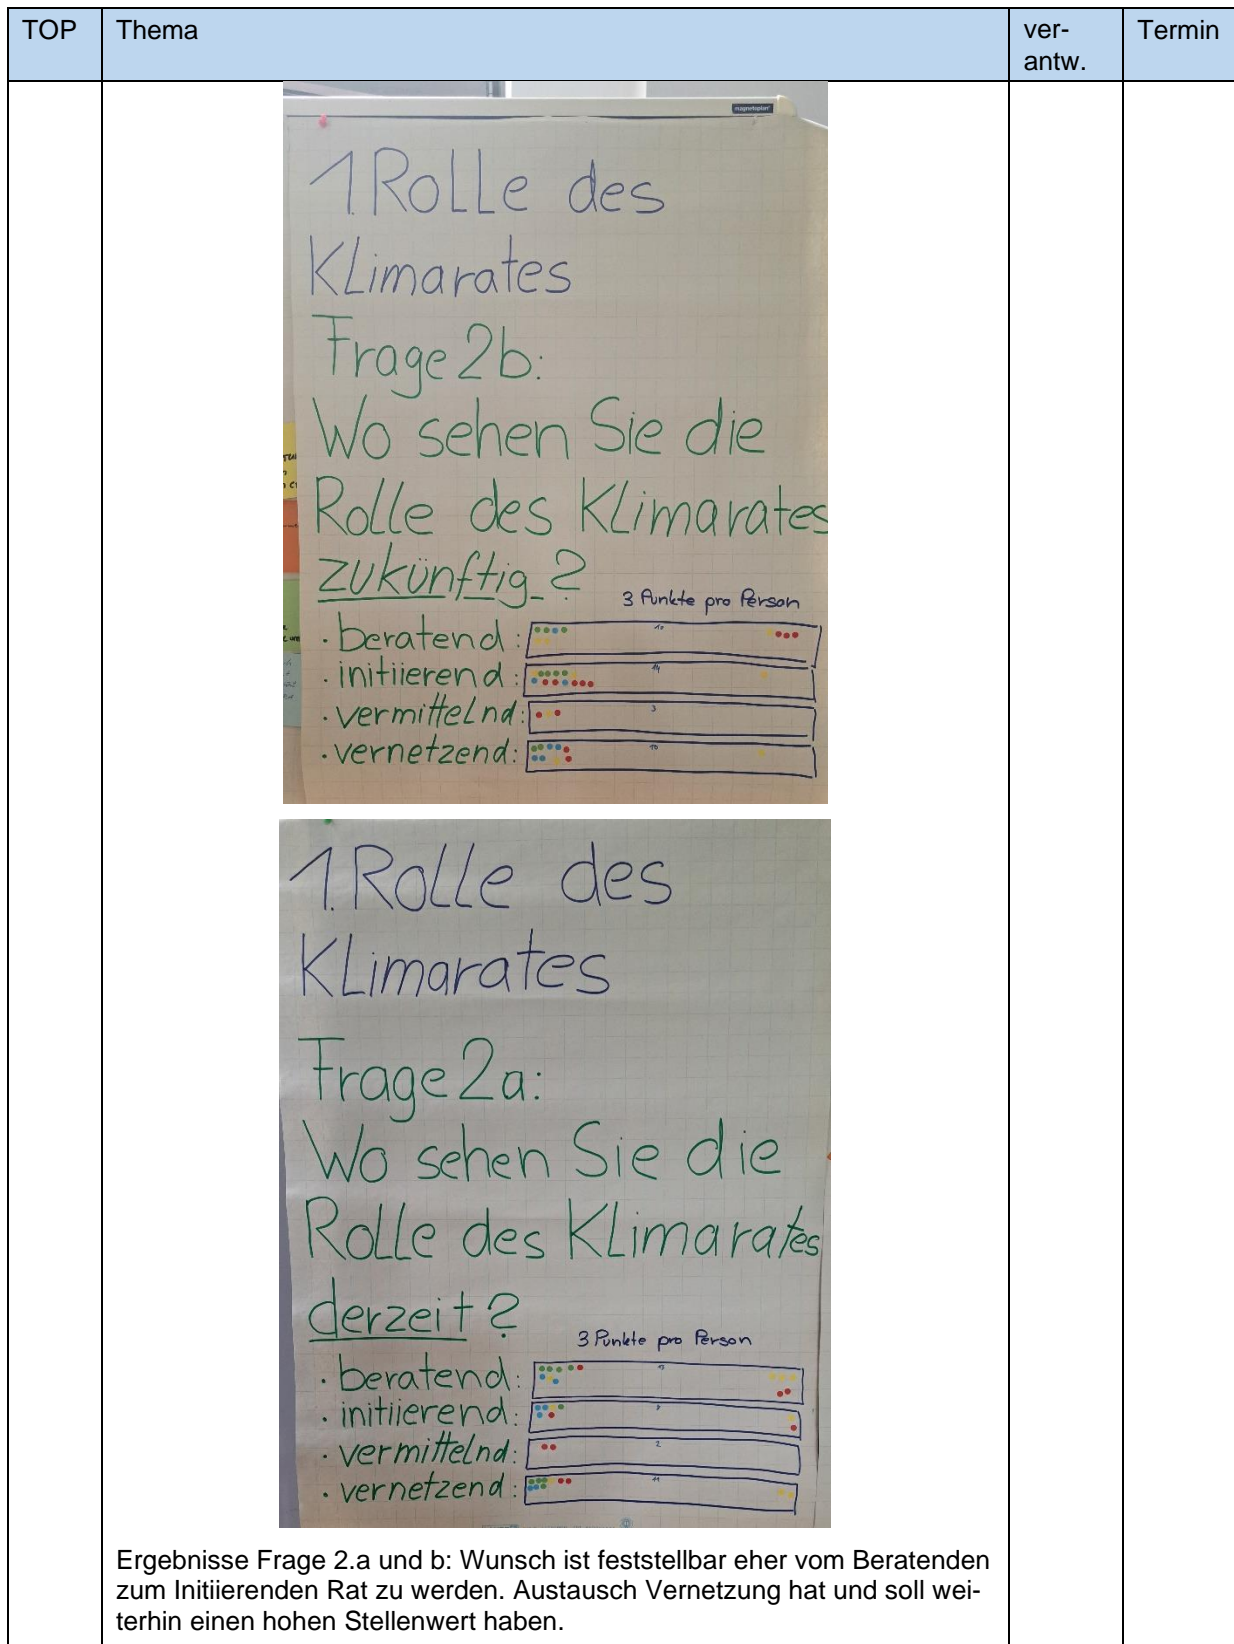 TOP
Thema
ver-
antw.
Termin
magnetoplan
1. Rolle des
Klimarates
Frage 2b:
Wo sehen Sie die
Rolle des Klimarates
zukünftig ?
3 Punkte pro Person
· beratend: 10
· initiierend: 14
· vermittelnd: 3
· vernetzend: 10
1. Rolle des
Klimarates
Frage 2a:
Wo sehen Sie die
Rolle des Klimarates
derzeit ?
3 Punkte pro Person
· beratend:
· initiierend:
· vermittelnd: 2
· vernetzend: 11
Ergebnisse Frage 2.a und b: Wunsch ist feststellbar eher vom Beratenden
zum Initiierenden Rat zu werden. Austausch Vernetzung hat und soll wei-
terhin einen hohen Stellenwert haben.